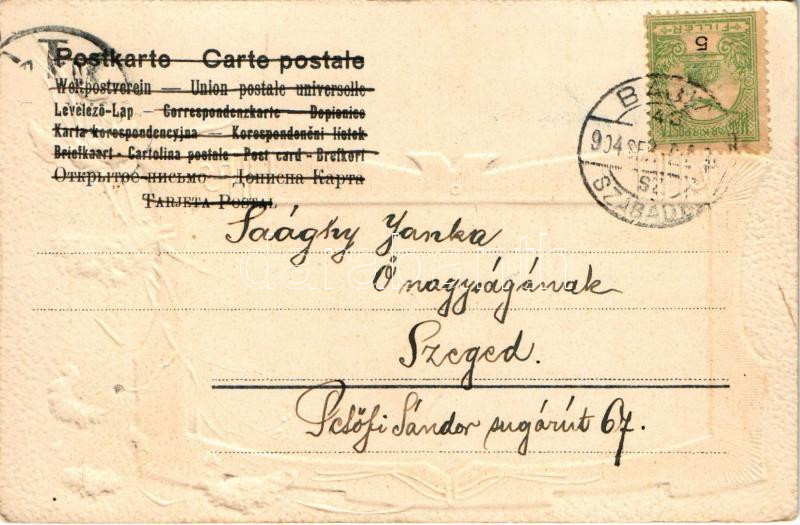 Postkarte — Carte postale
Weltpostverein — Union postale universelle
Levelező-Lap — Correspondenzkarte — Dopisnice
Karta korespondencyjna — Korespondenční lístek
Briefkaart - Cartolina postale - Post card - Brefkort
Открытое письмо — Дописна Карта
Tarjeta Postal
5
FILLER
904
SZABAD
Saághy Janka
Őnagyságának
Szeged.
Petőfi Sándor sugárút 67.
darabanth